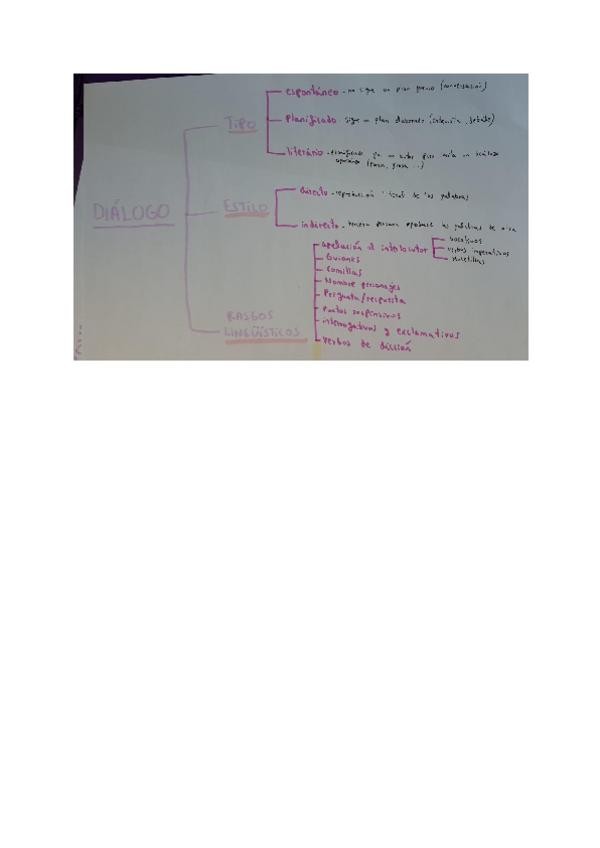 DIÁLOGO
TIPO
espontáneo - no sigue un plan previo (conversación)
planificado - sigue un plan elaborado (entrevista, debate)
literario - planificado
(poesía, prosa ...)
ESTILO
directo - reproducción literal de las palabras
indirecto - tercera persona reproduce las palabras de otra
RASGOS
LINGÜÍSTICOS
apelación al interlocutor
vocativos
verbos imperativos
muletillas
Guiones
Comillas
Nombre personajes
Pregunta/respuesta
Puntos suspensivos
interrogativas y exclamativas
verbos de dicción